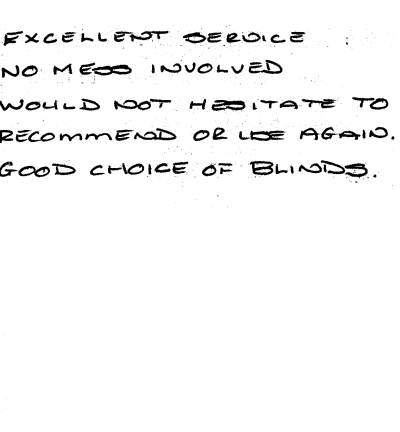 EXCELLENT SERVICE
NO MESS INVOLVED
WOULD NOT HESITATE TO
RECOMMEND OR USE AGAIN.
GOOD CHOICE OF BLINDS.